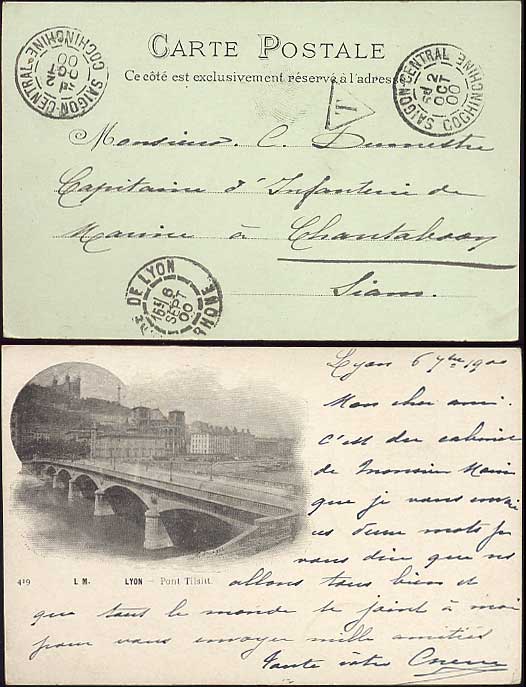 CARTE POSTALE
Ce côté est exclusivement réservé à l'adresse
SAIGON-CENTRAL
2
OCT
00
COCHINCHINE
T
SAIGON-CENTRAL
2
OCT
00
COCHINCHINE
Monsieur C. Dumestre
Capitaine d'Infanterie de
Marine à Chantaboon
Siam.
DE LYON
6
SEPT
00
RHONE
Lyon 6 7bre 1900
Mon cher ami.
C'est du cabinet
de Monsieur
que je vous envoie
ces deux mots pr
vous dire que ns
allons tous bien et
que tout le monde se joint à moi
pour vous envoyer mille amitiés
419 L M- LYON - Pont Tilsitt.